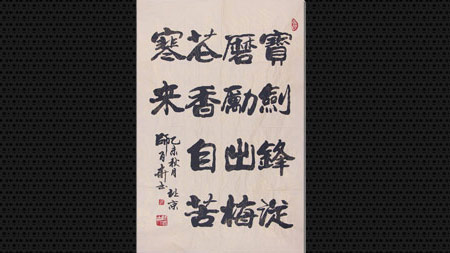 寶劍鋒從
磨勵出梅
花香自苦
寒来
乙未秋月北京